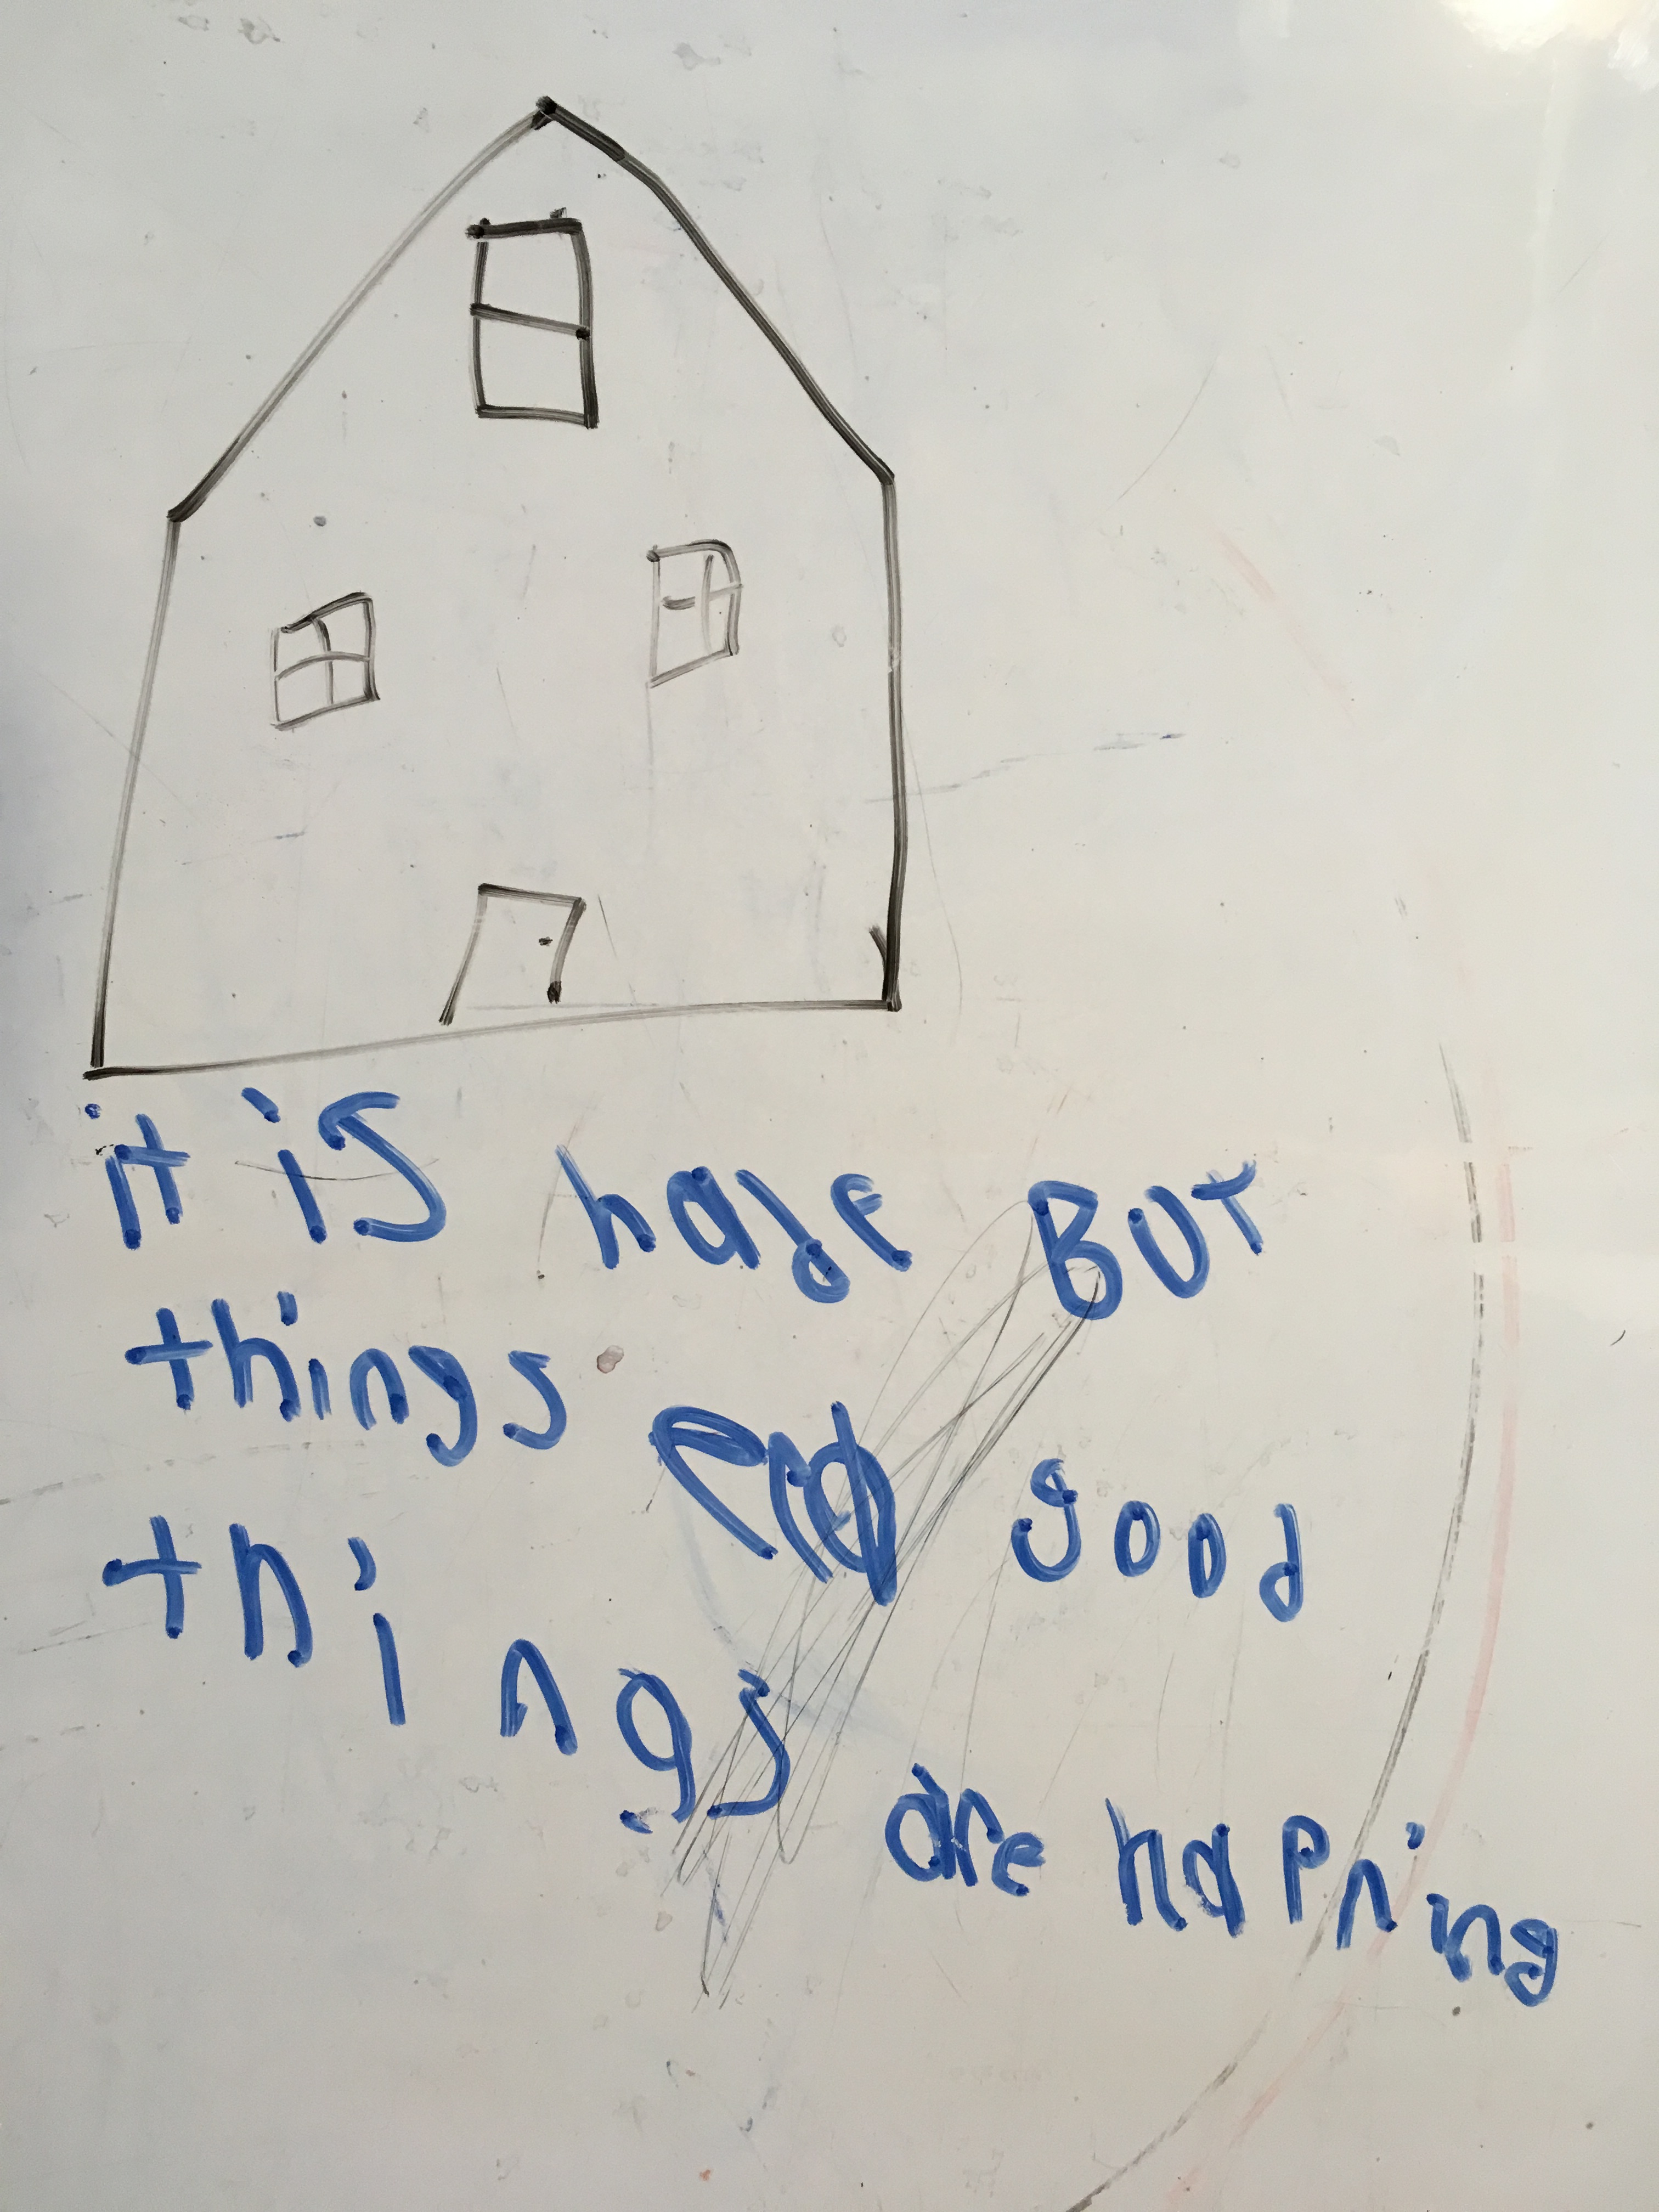 it is hade BUT
things end good
things are hapning